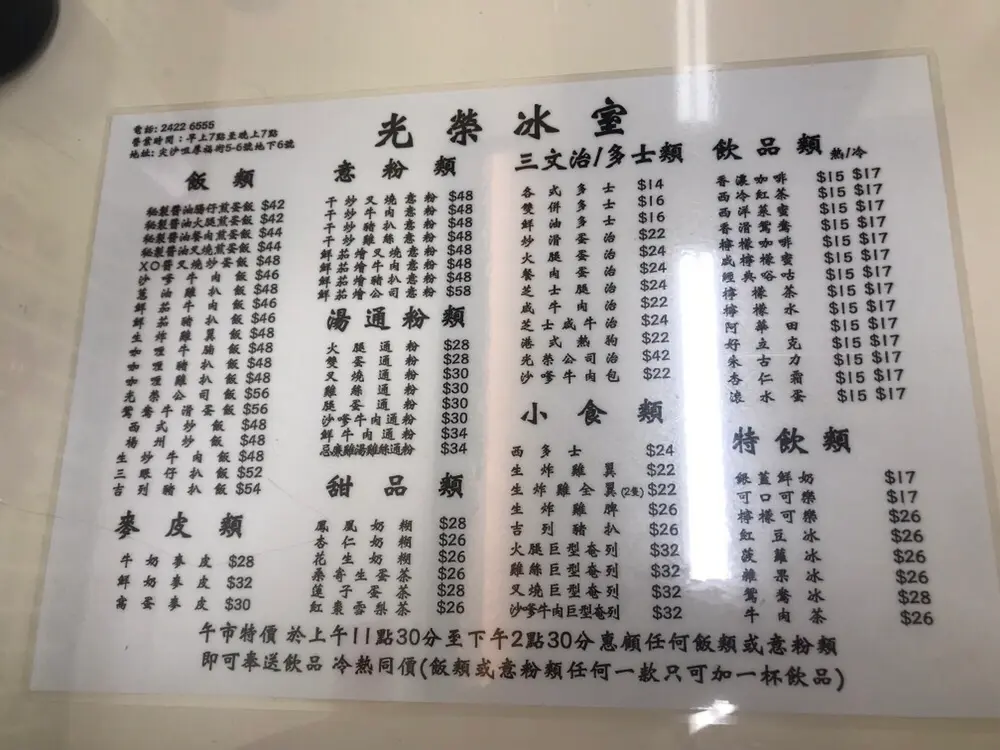 電話: 2422 6555
營業時間：早上7點至晚上7點
地址: 尖沙咀厚福街5-6號地下6號
光榮冰室
飯類
秘製醬油腸仔煎蛋飯 $42
秘製醬油火腿煎蛋飯 $42
秘製醬油餐肉煎蛋飯 $44
秘製醬油叉燒煎蛋飯 $44
XO醬叉燒炒蛋飯 $48
沙嗲牛肉飯 $46
蔥油雞扒飯 $48
鮮茄牛肉飯 $46
鮮茄豬扒飯 $46
生炸雞翼飯 $48
咖喱牛腩飯 $48
咖喱雞扒飯 $48
光榮公司飯 $56
鴛鴦牛滑蛋飯 $56
西式炒飯 $48
楊州炒飯 $48
生炒牛肉飯 $48
三眼仔扒飯 $52
吉列豬扒飯 $54
麥皮類
牛奶麥皮 $28
鮮奶麥皮 $32
窩蛋麥皮 $30
意粉類
干炒叉燒意粉 $48
干炒牛肉意粉 $48
干炒豬扒意粉 $48
干炒雞絲意粉 $48
鮮茄燴叉燒意粉 $48
鮮茄燴牛肉意粉 $48
鮮茄燴豬扒意粉 $48
鮮茄燴公司意粉 $58
湯通粉類
火腿通粉 $28
雙蛋通粉 $28
叉燒通粉 $30
雞絲通粉 $30
腿蛋通粉 $30
沙嗲牛肉通粉 $30
鮮牛肉通粉 $34
忌廉雞湯雞絲通粉 $34
甜品類
鳳凰奶糊 $28
杏仁奶糊 $26
花生奶糊 $26
桑寄生蛋茶 $26
蓮子蛋茶 $28
紅棗雪梨茶 $26
三文治/多士類
各式多士 $14
雙併多士 $16
鮮油多士 $16
炒滑蛋治 $22
火腿蛋治 $24
餐肉蛋治 $24
芝士腿治 $24
咸牛肉治 $22
芝士咸牛治 $24
港式熱狗 $22
光榮公司治 $42
沙嗲牛肉包 $22
小食類
西多士 $24
生炸雞翼 $22
生炸雞全翼(2隻) $22
生炸雞脾 $26
吉列豬扒 $26
火腿巨型奄列 $32
雞絲巨型奄列 $32
叉燒巨型奄列 $32
沙嗲牛肉巨型奄列 $32
飲品類 熱/冷
香濃咖啡 $15 $17
西冷紅茶 $15 $17
西洋菜蜜 $15 $17
香滑鴛鴦 $15 $17
檸檬咖啡 $15 $17
$15 $17
$15 $17
檸檬茶 $15 $17
檸檬水 $15 $17
阿華田 $15 $17
好立克 $15 $17
朱古力 $15 $17
杏仁霜 $15 $17
滾水蛋 $15 $17
特飲類
銀蓋鮮奶 $17
可口可樂 $17
檸檬可樂 $26
紅豆冰 $26
菠蘿冰 $26
雜果冰 $26
鴛鴦冰 $28
牛肉茶 $26
午市特價 於上午11點30分至下午2點30分惠顧任何飯類或意粉類
即可奉送飲品 冷熱同價(飯類或意粉類任何一款只可加一杯飲品)